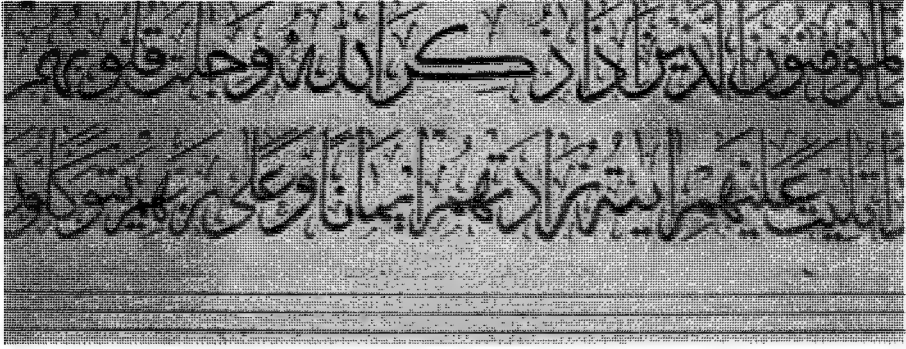 المؤمنون الذين اذا ذكر الله وجلت قلوبهم
تليت عليهم ايته زادتهم ايمانا وعلى ربهم يتوكلون